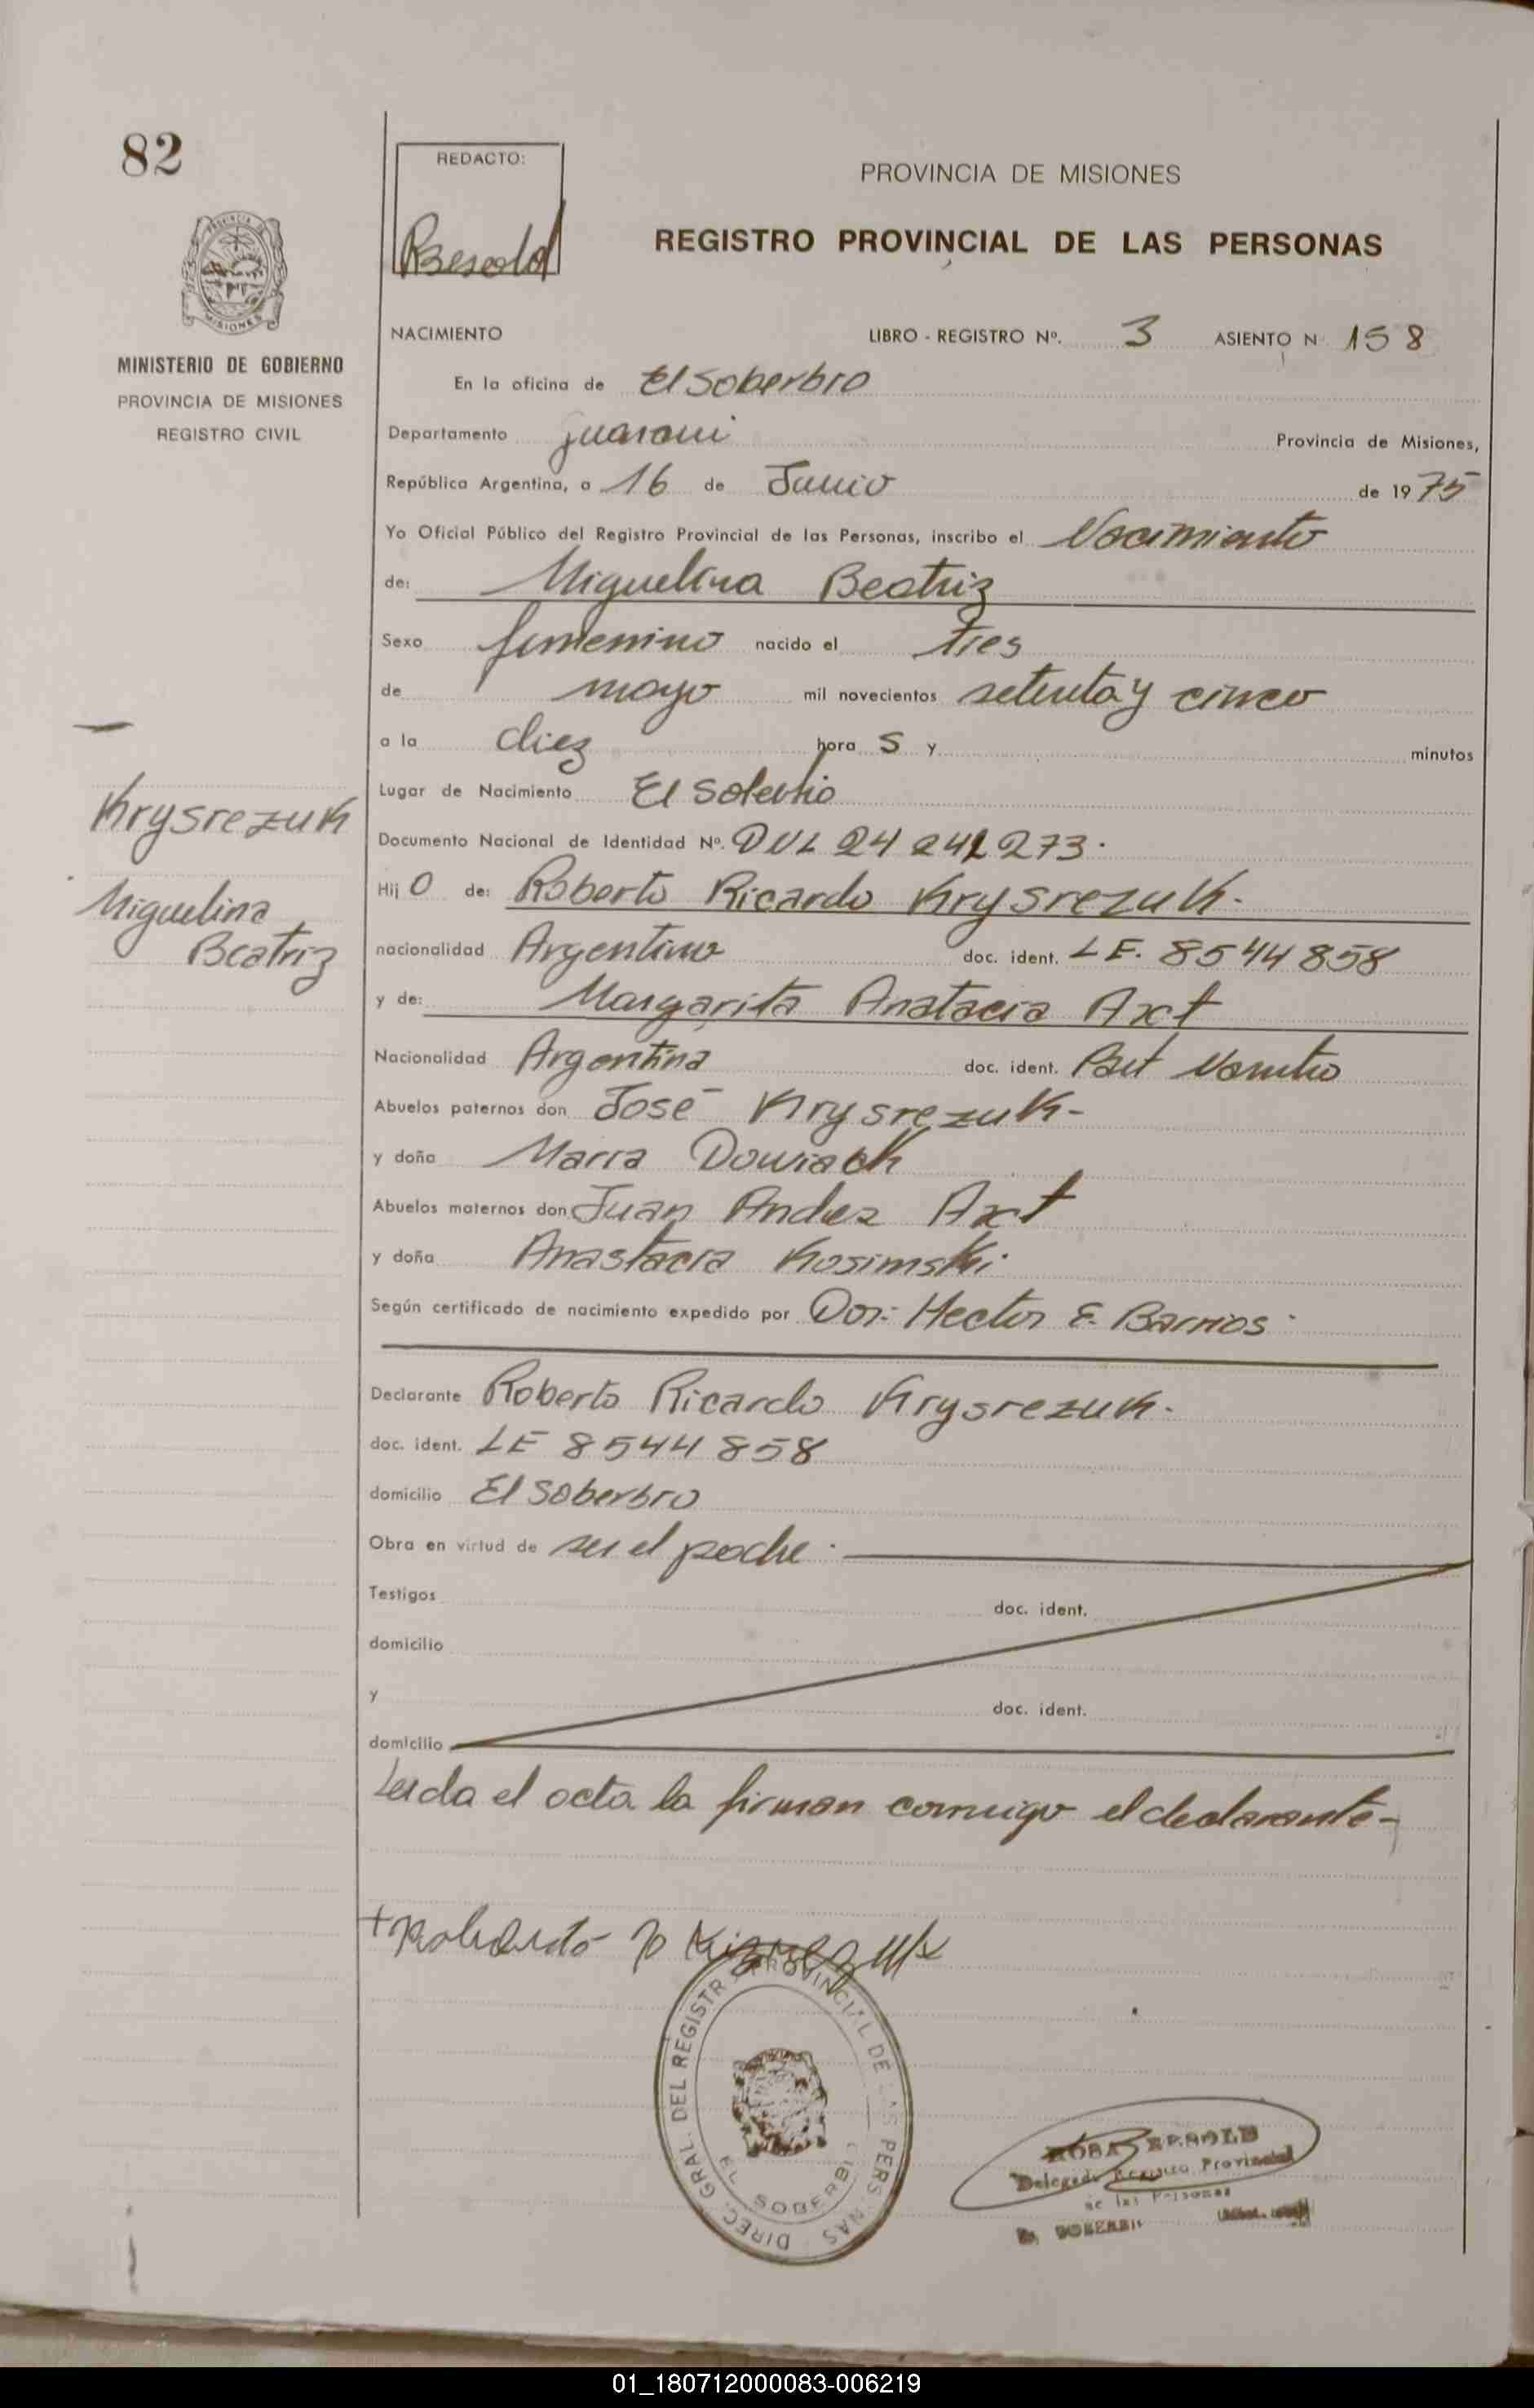 82
REDACTO:
Besold
PROVINCIA DE MISIONES
REGISTRO PROVINCIAL DE LAS PERSONAS
MISIONES
MINISTERIO DE GOBIERNO
PROVINCIA DE MISIONES
REGISTRO CIVIL
NACIMIENTO LIBRO - REGISTRO Nº. 3 ASIENTO N 158
En la oficina de El Soberbio
Departamento guarani Provincia de Misiones,
República Argentina, a 16 de Junio de 1975
Yo Oficial Público del Registro Provincial de las Personas, inscribo el Nacimiento
de: Miguelina Beatriz
Sexo femenino nacido el tres
de mayo mil novecientos setenta y cinco
a la diez hora s y minutos
Lugar de Nacimiento El Soberbio
Krysrezuk
Miguelina
Beatriz
Documento Nacional de Identidad Nº. DUL 24 242 273.
Hij o de: Roberto Ricardo Krysrezuk.
nacionalidad Argentino doc. ident. LE. 8544858
y de: Margarita Anatacia Axt
Nacionalidad Argentina doc. ident.
Abuelos paternos don José Krysrezuk-
y doña Maria Dowiack
Abuelos maternos don Juan Andez Axt
y doña Anastacia Kosimski
Según certificado de nacimiento expedido por Dor: Hector E. Barrios
Declarante Roberto Ricardo Krysrezuk.
doc. ident. LE 8544858
domicilio El Soberbio
Obra en virtud de ser el padre.
Testigos doc. ident.
domicilio
y doc. ident.
domicilio
Leida el acta la firman conmigo el declarante-
DIREC. GRAL. DEL REGISTRO PROVINCIAL DE LAS PERSONAS
EL SOBERBIO
ROSA BESOLD
Delegada Registro Provincial
de las Personas
EL SOBERBIO
01_180712000083-006219